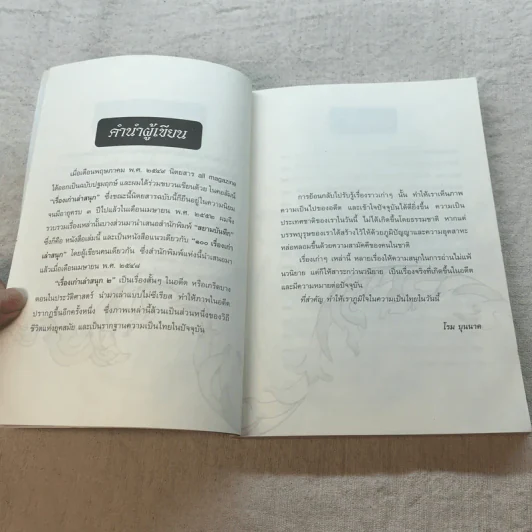 คำนำผู้เขียน
เมื่อเดือนพฤษภาคม พ.ศ. ๒๕๔๙ นิตยสาร all magazine
ได้ออกเป็นฉบับปฐมฤกษ์ และผมได้ร่วมขบวนเขียนด้วย ในคอลัมน์
"เรื่องเก่าเล่าสนุก" ซึ่งขณะนี้นิตยสารฉบับนี้ก็ยืนอยู่ในความนิยม
จนมีอายุครบ ๓ ปีไปแล้วในเดือนเมษายน พ.ศ. ๒๕๕๒ ผมจึง
รวบรวมเรื่องเหล่านั้นบางส่วนมานำเสนอสำนักพิมพ์ "สยามบันทึก"
ซึ่งก็คือ หนังสือเล่มนี้ และเป็นหนังสือแนวเดียวกับ "๑๐๐ เรื่องเก่า
เล่าสนุก" โดยผู้เขียนคนเดียวกัน ซึ่งสำนักพิมพ์แห่งนี้นำเสนอมา
แล้วเมื่อเดือนเมษายน พ.ศ.
"เรื่องเก่าเล่าสนุก ๒" เป็นเรื่องสั้นๆ ในอดีต หรือเกร็ดบาง
ตอนในประวัติศาสตร์ นำมาเล่าแบบไม่ซีเรียส ทำให้ภาพในอดีต
ปรากฏขึ้นอีกครั้งหนึ่ง ซึ่งภาพเหล่านี้ล้วนเป็นส่วนหนึ่งของวิถี
ชีวิตแห่งยุคสมัย และเป็นรากฐานความเป็นไทยในปัจจุบัน
การย้อนกลับไปรับรู้เรื่องราวเก่าๆ นั้น ทำให้เราเห็นภาพ
ความเป็นไปของอดีต และเข้าใจปัจจุบันได้ดียิ่งขึ้น ความเป็น
ประเทศชาติของเราในวันนี้ ไม่ได้เกิดขึ้นโดยธรรมชาติ หากแต่
บรรพบุรุษของเราได้สร้างไว้ให้ด้วยภูมิปัญญาและความอุตสาหะ
หล่อหลอมขึ้นด้วยความสามัคคีของคนในชาติ
เรื่องเก่าๆ เหล่านี้ หลายเรื่องให้ความสนุกในการอ่านไม่แพ้
นวนิยาย แต่ก็ให้สาระกว่านวนิยาย เป็นเรื่องจริงที่เกิดขึ้นในอดีต
และมีความหมายต่อปัจจุบัน
ที่สำคัญ ทำให้เราภูมิใจในความเป็นไทยในวันนี้
โรม บุนนาค